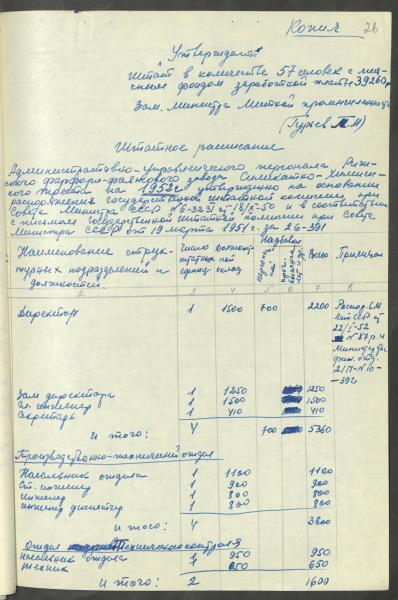 Копия 26
"Утверждаю"
Штат в количестве 57 человек с месячным фондом заработной платы 39260 р
Зам. Министра Местной промышленности
(Гурьев М.М)
Штатное расписание
Административно-управленческого персонала Рижского фарфоро-фаянсового завода Силикатно-Химического треста на 1952 г утверждено на основании
распоряжения государственной штатной комиссии при
Совете Министра СССР № 6-3231 от 18/X-50 и в соответствии
с письмом Государственной Штатной комиссии при Совете
Министра СССР от 19 марта 1951 г. за 26-391
Наименование структурных подразделений и должностей
Число штатных единиц
Должностной оклад
Надбавки
Всего
Примечан
2 3 4 5 6 7 8
Директор 1 1500 700 2200
Распор. СМ
Лат. ССР от
22/I-52
№ 87р и
392
Зам директора 1 1250 1250
Гл. инженер 1 1500 1500
Секретарь 1 410 410
И того: 4 700 5360
Производственно-технический отдел
Начальник отдела 1 1100 1100
Ст. инженер 1 900 900
инженер 1 800 800
инженер диспетчер 1 800 800
И того: 4 3600
Отдел Технического контроля
начальник отдела 1 950 950
техник 1 650 650
И того: 2 1600